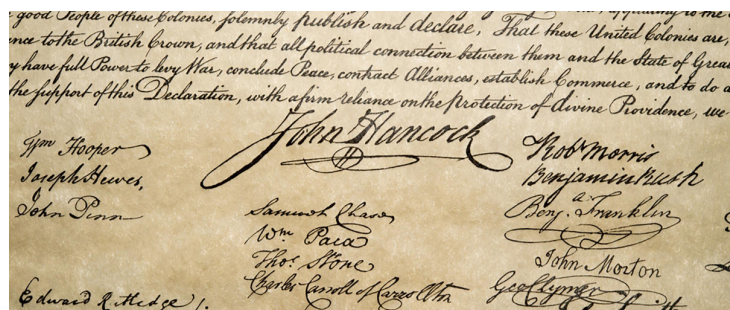 good People of these Colonies, solemnly publish and declare, That these United Colonies are,
ence to the British Crown, and that all political connection between them and the State of Great
y have full Power to levy War, conclude Peace, contract Alliances, establish Commerce, and to do a
the support of this Declaration, with a firm reliance on the Protection of divine Providence, we
John Hancock
Wm Hooper
Joseph Hewes,
John Penn
Edward Rutledge /.
Samuel Chase
Wm. Paca
Thos. Stone
Charles Carroll of Carrollton
Robt Morris
Benjamin Rush
Benj. Franklin
John Morton
Geo Clymer